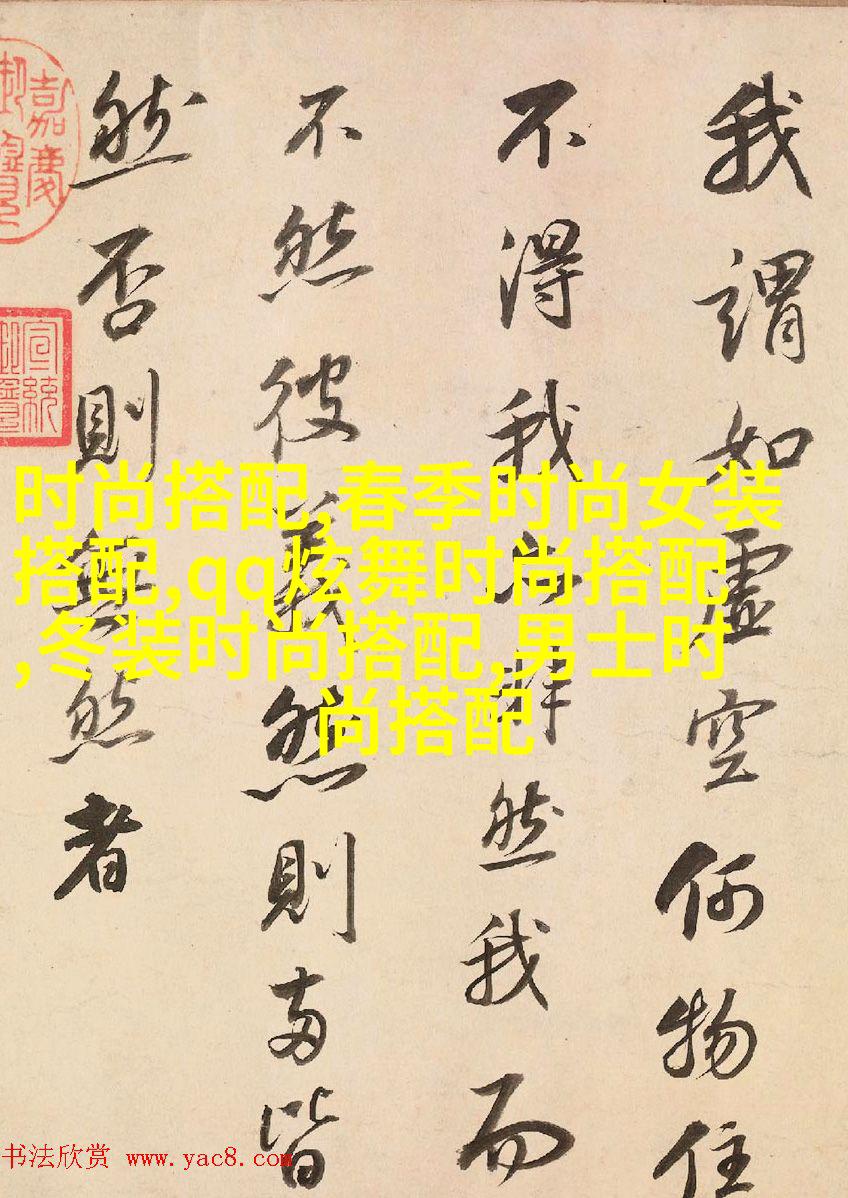 我謂如虛空何物住
不得我然我而
不然彼義然則兩皆
然否則無然者
嘉慶
宣統
时尚搭配,春季时尚女装
搭配,qq炫舞时尚搭配
,冬装时尚搭配,男士时
尚搭配
书法欣赏 www.yac8.com